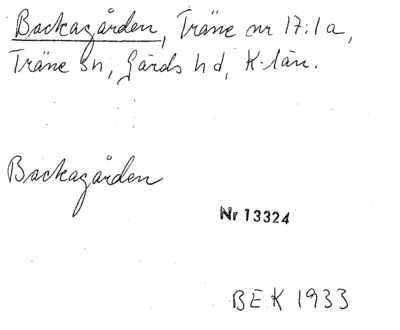 Backagården, Träne nr 17:1a,
Träne sn, Gärds hd, K-län.
Backagården
Nr 13324
BEK 1933